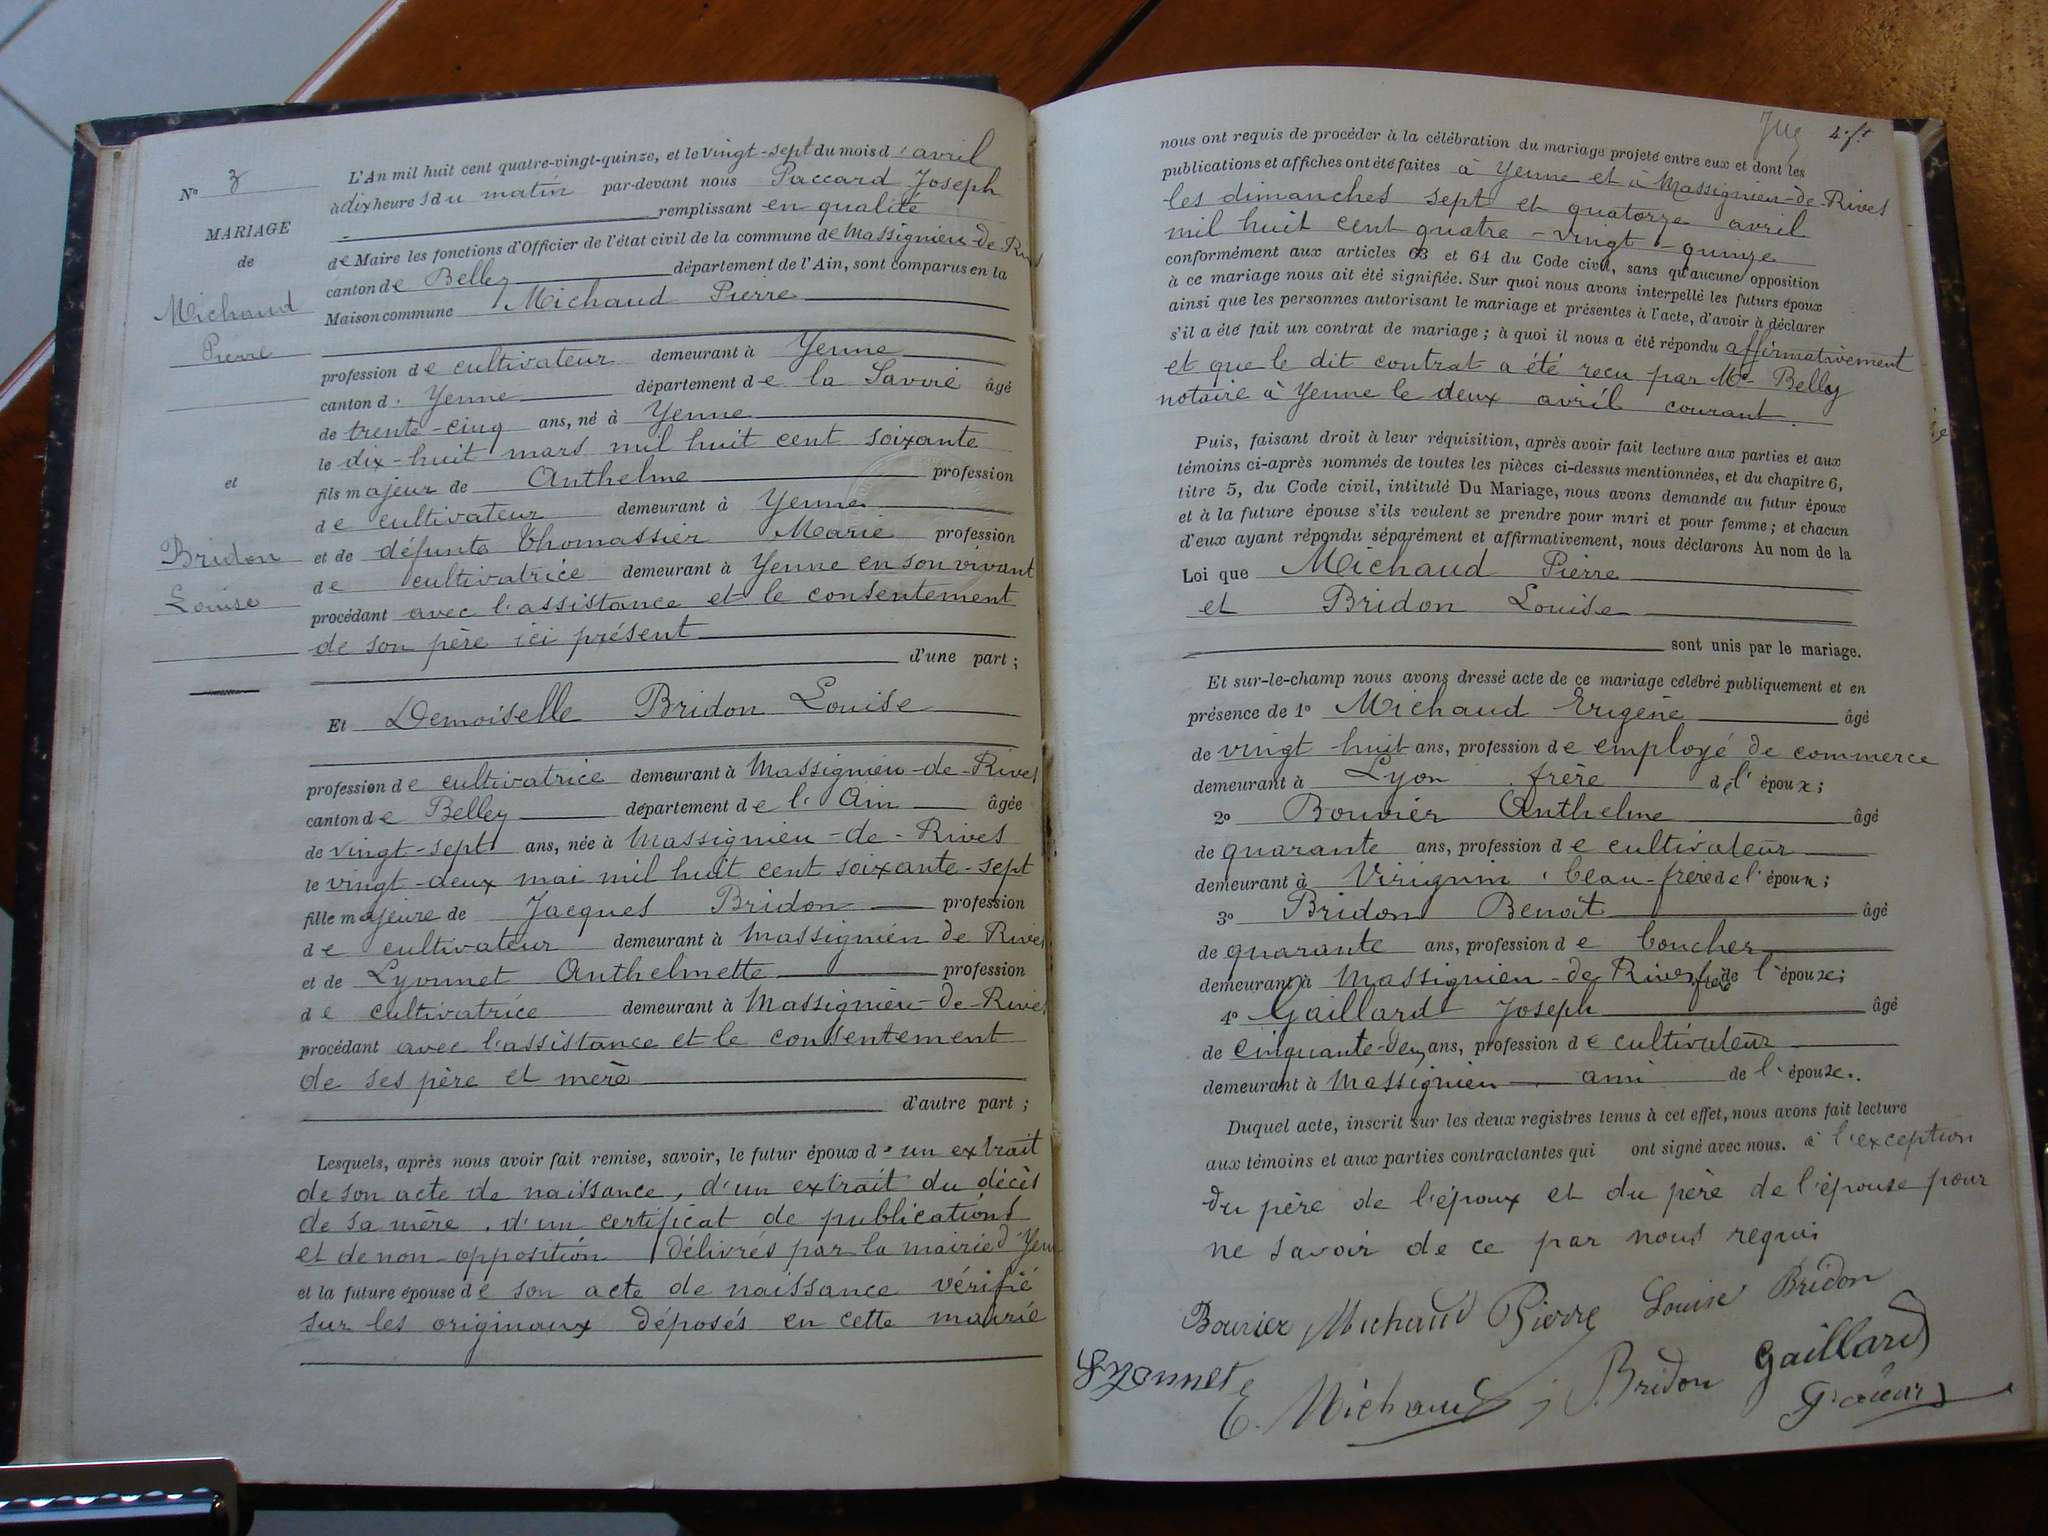 N° 3
MARIAGE
de
Michaud
Pierre
et
Bridon
Louise
L'An mil huit cent quatre-vingt-quinze, et le vingt-sept du mois d'avril
à dix heures du matin par-devant nous Paccard Joseph
remplissant en qualité
de Maire les fonctions d'Officier de l'état civil de la commune de Massignieu-de-Riv
canton de Belley département de l'Ain, sont comparus en la
Maison commune Michaud Pierre
profession de cultivateur demeurant à Yenne
canton d. Yenne département de la Savoie âgé
de trente-cinq ans, né à Yenne
le dix-huit mars mil huit cent soixante
fils majeur de Anthelme profession
de cultivateur demeurant à Yenne
et de défunte Thomassier Marie profession
de cultivatrice demeurant à Yenne en son vivant
procédant avec l'assistance et le consentement
de son père ici présent
d'une part ;
Et Demoiselle Bridon Louise
profession de cultivatrice demeurant à Massignieu-de-Rives
canton de Belley département de l'Ain âgée
de vingt-sept ans, née à Massignieu-de-Rives
le vingt-deux mai mil huit cent soixante-sept
fille majeure de Jacques Bridon profession
de cultivateur demeurant à Massignieu de Rives
et de Lyonnet Anthelmette profession
de cultivatrice demeurant à Massignieu-de-Rives
procédant avec l'assistance et le consentement
de ses père et mère
d'autre part ;
Lesquels, après nous avoir fait remise, savoir, le futur époux d'un extrait
de son acte de naissance, d'un extrait du décès
de sa mère, d'un certificat de publications
et de non-opposition délivrés par la mairie d'Yenn
et la future épouse de son acte de naissance vérifié
sur les originaux déposés en cette mairie
nous ont requis de procéder à la célébration du mariage projeté entre eux et dont les
publications et affiches ont été faites à Yenne et à Massignieu-de-Rives
les dimanches sept et quatorze avril
mil huit cent quatre-vingt-quinze
conformément aux articles 63 et 64 du Code civil, sans qu'aucune opposition
à ce mariage nous ait été signifiée. Sur quoi nous avons interpellé les futurs époux
ainsi que les personnes autorisant le mariage et présentes à l'acte, d'avoir à déclarer
s'il a été fait un contrat de mariage ; à quoi il nous a été répondu affirmativement
et que le dit contrat a été reçu par Me Belly
notaire à Yenne le deux avril courant.
Puis, faisant droit à leur réquisition, après avoir fait lecture aux parties et aux
témoins ci-après nommés de toutes les pièces ci-dessus mentionnées, et du chapitre 6,
titre 5, du Code civil, intitulé Du Mariage, nous avons demandé au futur époux
et à la future épouse s'ils veulent se prendre pour mari et pour femme ; et chacun
d'eux ayant répondu séparément et affirmativement, nous déclarons Au nom de la
Loi que Michaud Pierre
et Bridon Louise
sont unis par le mariage.
Et sur-le-champ nous avons dressé acte de ce mariage célébré publiquement et en
présence de 1° Michaud Eugène âgé
de vingt huit ans, profession de employé de commerce
demeurant à Lyon frère de l'époux ;
2° Bouvier Anthelme âgé
de quarante ans, profession de cultivateur
demeurant à Virignin beau-frère de l'époux ;
3° Bridon Benoit âgé
de quarante ans, profession de boucher
demeurant à Massignieu-de-Rives frère de l'épouse ;
4° Gaillard Joseph âgé
de cinquante-deux ans, profession de cultivateur
demeurant à Massignieu ami de l'épouse.
Duquel acte, inscrit sur les deux registres tenus à cet effet, nous avons fait lecture
aux témoins et aux parties contractantes qui ont signé avec nous. à l'exception
du père de l'époux et du père de l'épouse pour
ne savoir de ce par nous requis
Bouvier Michaud Pierre Louise Bridon
Lyonnet E. Michaud Bridon Gaillard